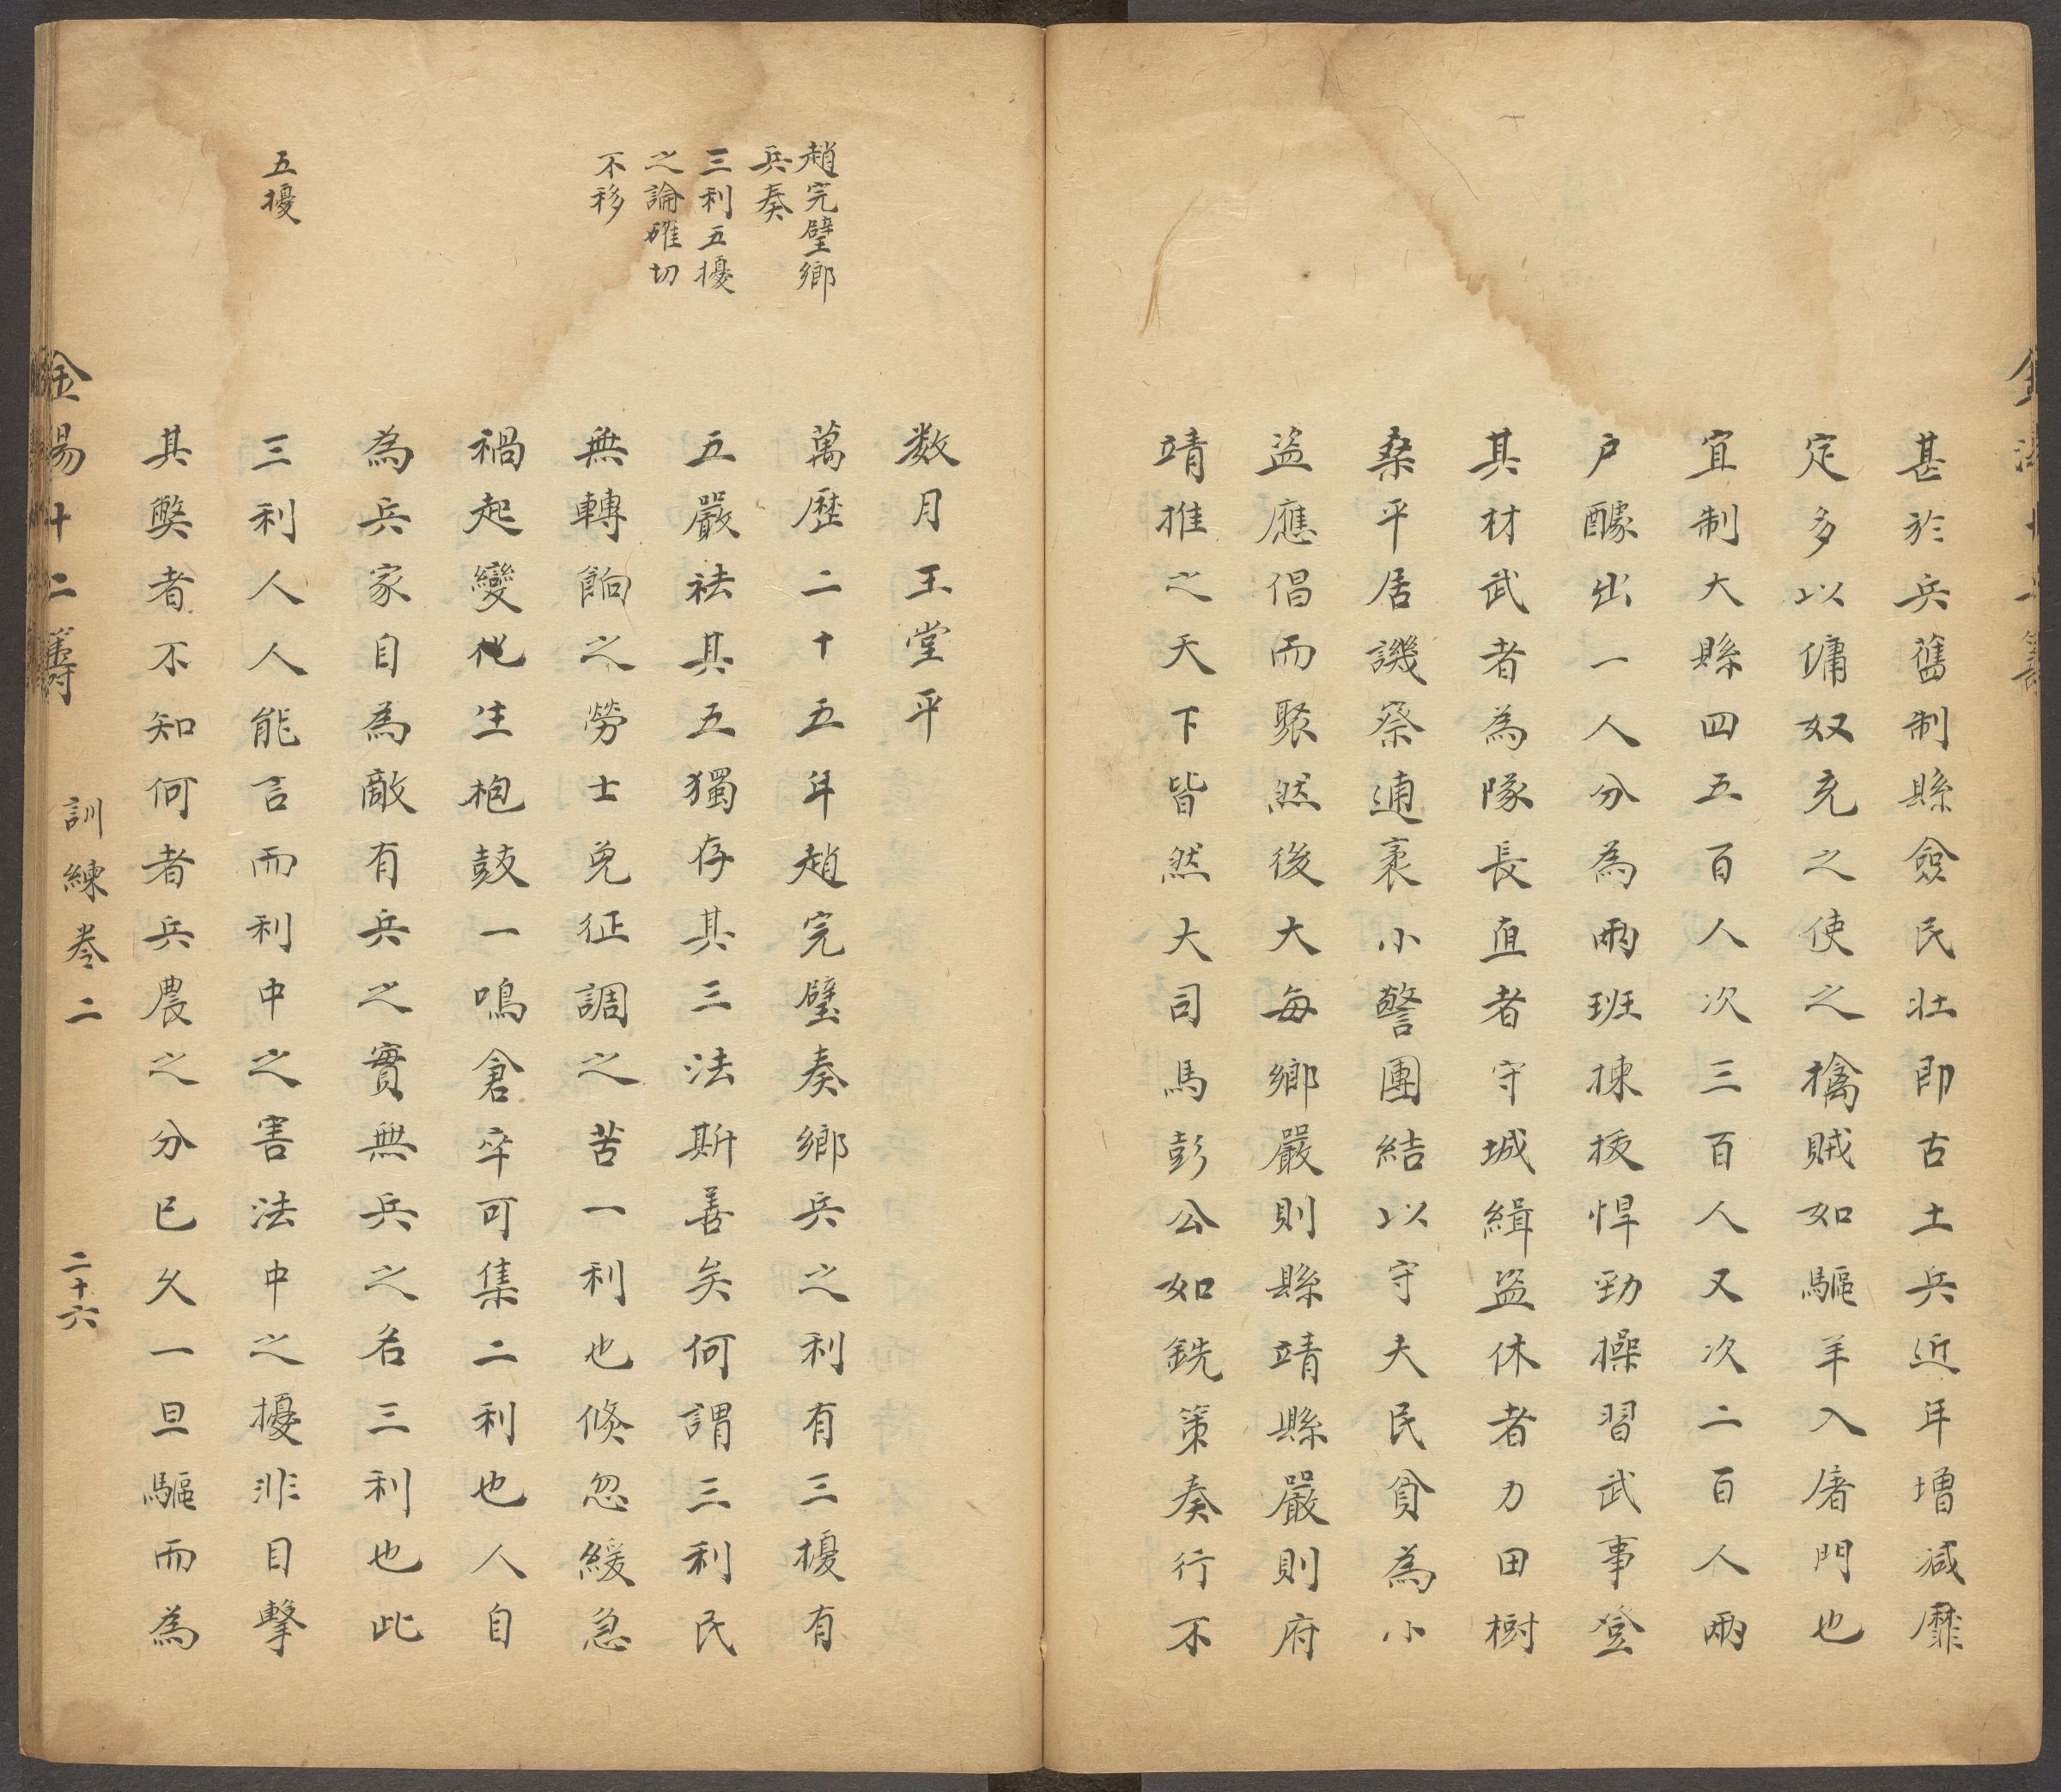 甚於兵舊制縣僉民壯即古土兵近年增減靡
定多以傭奴充之使之擒賊如驅羊入屠門也
宜制大縣四五百人次三百人又次二百人兩
户醵出一人分為兩班揀扳悍勁操習武事登
其材武者為隊長直者守城緝盗休者力田樹
桑平居譏祭逋裹小警團結以守夫民貧為小
盗應倡而聚然後大每鄉嚴則縣靖縣嚴則府
靖推之天下皆然大司馬彭公如銑策奏行不
数月王堂平
趙完璧鄉
兵奏
三利五擾
之論確切
不移
萬歷二十五年趙完璧奏鄉兵之利有三擾有
五嚴袪其五獨存其三法斯善矣何謂三利民
無轉餉之勞士免征調之苦一利也倏忽緩急
禍起變化生枹鼓一鳴倉卒可集二利也人自
為兵家自為敵有兵之實無兵之名三利也此
五擾
三利人人能言而利中之害法中之擾非目擊
其獘者不知何者兵農之分已久一旦驅而為
金湯十二籌 訓練卷二 二十六